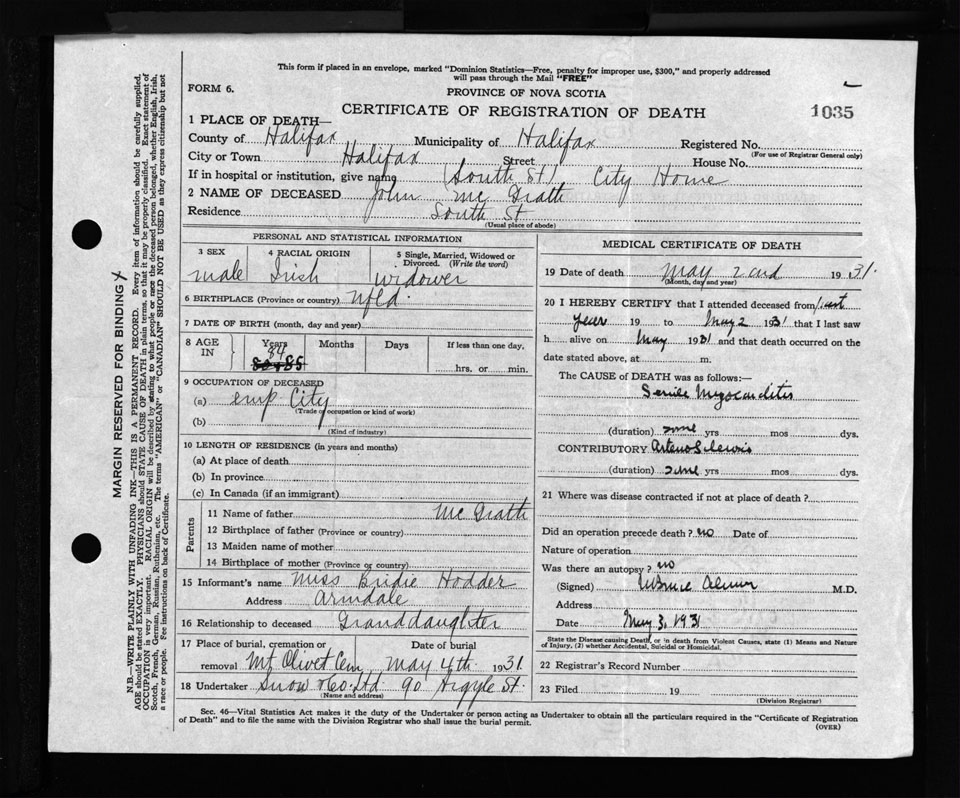 This form if placed in an envelope, marked "Dominion Statistics—Free, penalty for improper use, $300," and properly addressed
will pass through the Mail "FREE"
FORM 6.
PROVINCE OF NOVA SCOTIA
CERTIFICATE OF REGISTRATION OF DEATH
1035
1 PLACE OF DEATH—
County of Halifax Municipality of Halifax Registered No.
(For use of Registrar General only)
City or Town Halifax Street House No.
If in hospital or institution, give name (South St) City Home
2 NAME OF DECEASED John Mc Grath
Residence South St
(Usual place of abode)
PERSONAL AND STATISTICAL INFORMATION
3 SEX 4 RACIAL ORIGIN 5 Single, Married, Widowed or
Divorced. (Write the word)
male Irish widower
6 BIRTHPLACE (Province or country) Nfld.
7 DATE OF BIRTH (month, day and year)
8 AGE IN Years Months Days If less than one day,
84
hrs. or min.
9 OCCUPATION OF DECEASED
(a) emp City
(Trade or occupation or kind of work)
(b)
(Kind of industry)
10 LENGTH OF RESIDENCE (in years and months)
(a) At place of death
(b) In province
(c) In Canada (if an immigrant)
Parents
11 Name of father Mc Grath
12 Birthplace of father (Province or country)
13 Maiden name of mother
14 Birthplace of mother (Province or country)
15 Informant's name Miss Bridie Hodder
Address Armdale
16 Relationship to deceased Granddaughter
17 Place of burial, cremation or Date of burial
removal Mt Olivet Cem May 4th 1931.
18 Undertaker Snow & Co. Ltd 90 Argyle St.
(Name and address)
MEDICAL CERTIFICATE OF DEATH
19 Date of death May 2nd 1931.
(Month, day and year)
20 I HEREBY CERTIFY that I attended deceased from last
year 19 to May 2 1931 that I last saw
h alive on May 1931 and that death occurred on the
date stated above, at m.
The CAUSE of DEATH was as follows:—
Senile Myocarditis
(duration) some yrs mos dys.
CONTRIBUTORY
(duration) some yrs mos dys.
21 Where was disease contracted if not at place of death?
Did an operation precede death? no Date of
Nature of operation
Was there an autopsy? no
(Signed) M.D.
Address
Date May 3, 1931
State the Disease causing Death, or in death from Violent Causes, state (1) Means and Nature
of Injury, (2) whether Accidental, Suicidal or Homicidal.
22 Registrar's Record Number
23 Filed 19
(Division Registrar)
Sec. 46—Vital Statistics Act makes it the duty of the Undertaker or person acting as Undertaker to obtain all the particulars required in the "Certificate of Registration
of Death" and to file the same with the Division Registrar who shall issue the burial permit.
(OVER)
MARGIN RESERVED FOR BINDING
N.B.—WRITE PLAINLY WITH UNFADING INK—THIS IS A PERMANENT RECORD. Every item of information should be carefully supplied.
AGE should be stated EXACTLY. PHYSICIANS should STATE CAUSE OF DEATH in plain terms, so that it may be properly classified. Exact statement of
OCCUPATION is very important. RACIAL ORIGIN will be described by stating to what people or race the deceased person belonged, whether English, Irish,
Scotch, French, German, Russian, Ruthenian, etc. The terms "AMERICAN" or "CANADIAN" SHOULD NOT BE USED as they express citizenship but not
a race or people. Fee instructions on back of Certificate.